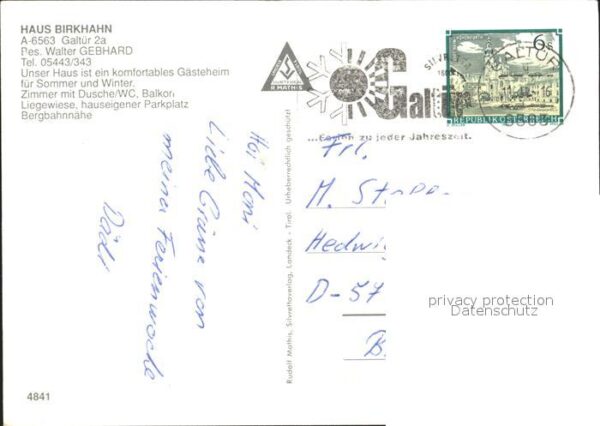 HAUS BIRKHAHN
A-6563 Galtür 2a
Pes. Walter GEBHARD
Tel. 05443/343
Unser Haus ist ein komfortables Gästeheim
für Sommer und Winter.
Zimmer mit Dusche/WC, Balkon
Liegewiese, hauseigener Parkplatz
Bergbahnnähe
Hoi Moni
Liebe Grüsse von
meiner Ferienwoche
4841
Rudolf Mathis, Silvrettaverlag, Landeck - Tirol. Urheberrechtlich geschützt
R. MATHIS
Galtür
...Ferien zu jeder Jahreszeit.
GALTÜR
6 S
REPUBLIK ÖSTERREICH
Frl.
M.
Hedwi
D-57
B.
privacy protection
Datenschutz